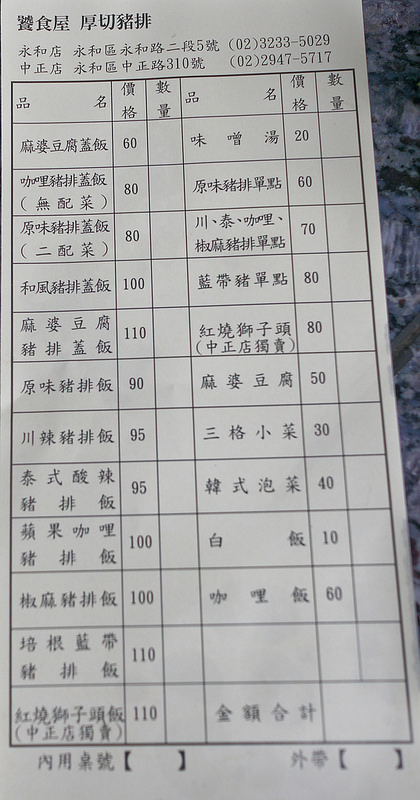 饕食屋 厚切豬排
永和店 永和區永和路二段5號 (02)3233-5029
中正店 永和區中正路310號 (02)2947-5717
品名 價格 數量 品名 價格 數量
麻婆豆腐蓋飯 60 味噌湯 20
咖哩豬排蓋飯(無配菜) 80 原味豬排單點 60
原味豬排蓋飯(二配菜) 80 川、泰、咖哩、椒麻豬排單點 70
和風豬排蓋飯 100 藍帶豬單點 80
麻婆豆腐豬排蓋飯 110 紅燒獅子頭(中正店獨賣) 80
原味豬排飯 90 麻婆豆腐 50
川辣豬排飯 95 三格小菜 30
泰式酸辣豬排飯 95 韓式泡菜 40
蘋果咖哩豬排飯 100 白飯 10
椒麻豬排飯 100 咖哩飯 60
培根藍帶豬排飯 110
紅燒獅子頭飯(中正店獨賣) 110 金額合計
內用桌號【 】 外帶【 】